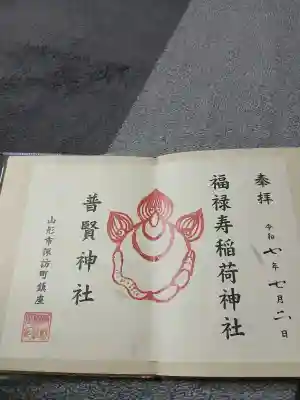 奉拝
令和七年七月二日
福禄寿稲荷神社
普賢神社
山形市諏訪町鎮座